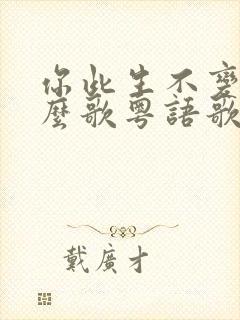 你此生不變
麼歌粵語歌
戴廣才